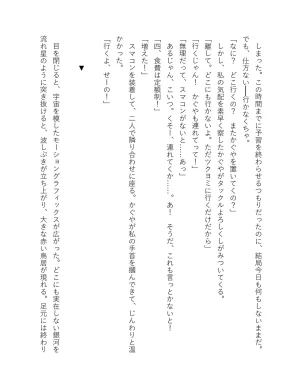 しまった。この時間までに予習を終わらせるつもりだったのに、結局今日も何もしないままだ。
でも、仕方ない――行かなくちゃ。
「なに? どこ行くの? またかぐやを置いてくの?」
しかし、私の気配を素早く察したかぐやがタックルよろしくしがみついてくる。
「離して。どこにも行かないよ。ただツクヨミに行くだけだから」
「行くじゃん! かぐやも連れてって!」
「無理だって、スマコンがないと……あっ」
あるじゃん、こいつ。くそー、連れてくか……。あ! そうだ、これも言っとかないと!
「四、食費は定額制!」
「増えた!」
スマコンを装着して、二人で隣り合わせに座る。かぐやが私の手首を掴んできて、じんわりと温
かかった。
「行くよ、せーの!」
▼
目を閉じると、宇宙を模したモーショングラフィックスが広がった。どこにも実在しない銀河を
流れ星のように突き抜けると、波しぶきが立ち上がり、大きな赤い鳥居が現れる。足元には終わり